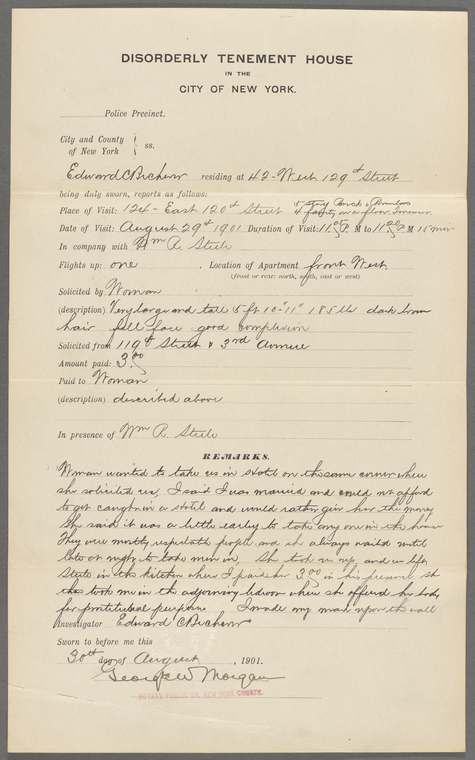 DISORDERLY TENEMENT HOUSE
IN THE
CITY OF NEW YORK.
Police Precinct.
City and County
of New York
ss.
Edward residing at 42-West 129th Street
being duly sworn, reports as follows:
Place of Visit: 124- East 120th Street 5 Story Brick &
4 on a floor
Date of Visit: August 29th 1901. Duration of Visit: 11. P. M to 11 20 P. M 15 min
In company with Wm R. Steele
Flights up: one . Location of Apartment front West
(front or rear: north, south, east or west)
Solicited by Woman
(description) Very large and tall 5 ft 10"-11" 185 lb dark brown
hair full face good complexion
Solicited from 119th Street & 3rd Avenue
Amount paid: 3.00
Paid to Woman
(description) described above
In presence of Wm R. Steele
REMARKS.
Woman wanted to take us in Hotel on the same corner where
she solicited us, I said I was married and could not afford
to get caught in a Hotel and would rather give her the money
She said it was a little early to take any one in the house
They were mostly respectable people and she always waited until
late at night to take men in, She took us up, and we left
Steele in the kitchen where I paid her 3.00 in his presence She
then took me in the adjoining bedroom where she offered her body
for prostituted purpose I made my mark upon the wall
Investigator Edward
Sworn to before me this
30th day of August , 1901.
George W Morgan
NOTARY PUBLIC IN NEW YORK COUNTY.